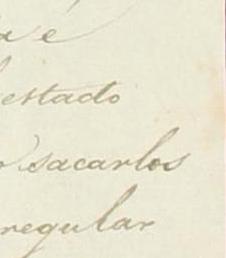 é
estado
sacarlos
regular